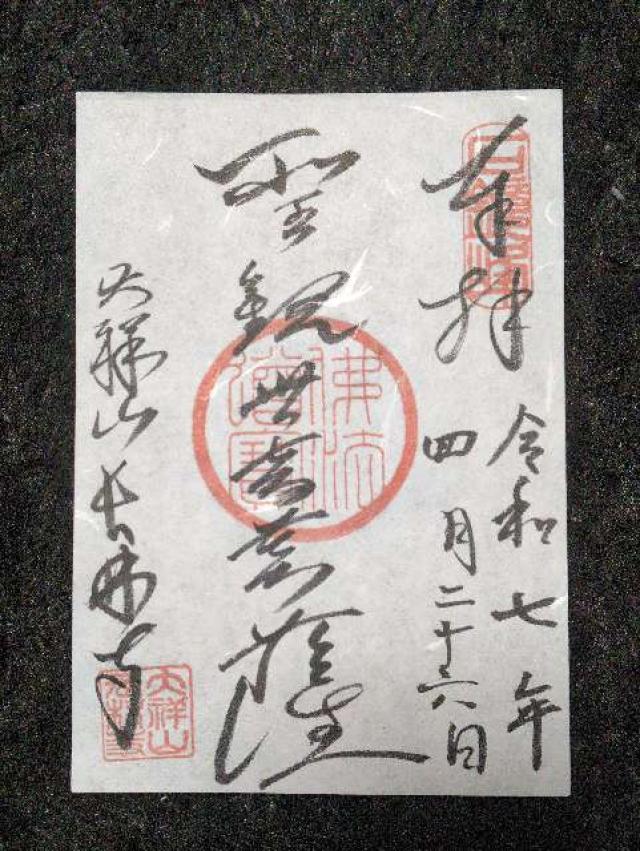 奉拝
令和七年
四月二十六日
聖観世音菩薩
大祥山長林寺
佛法僧寳
大祥山